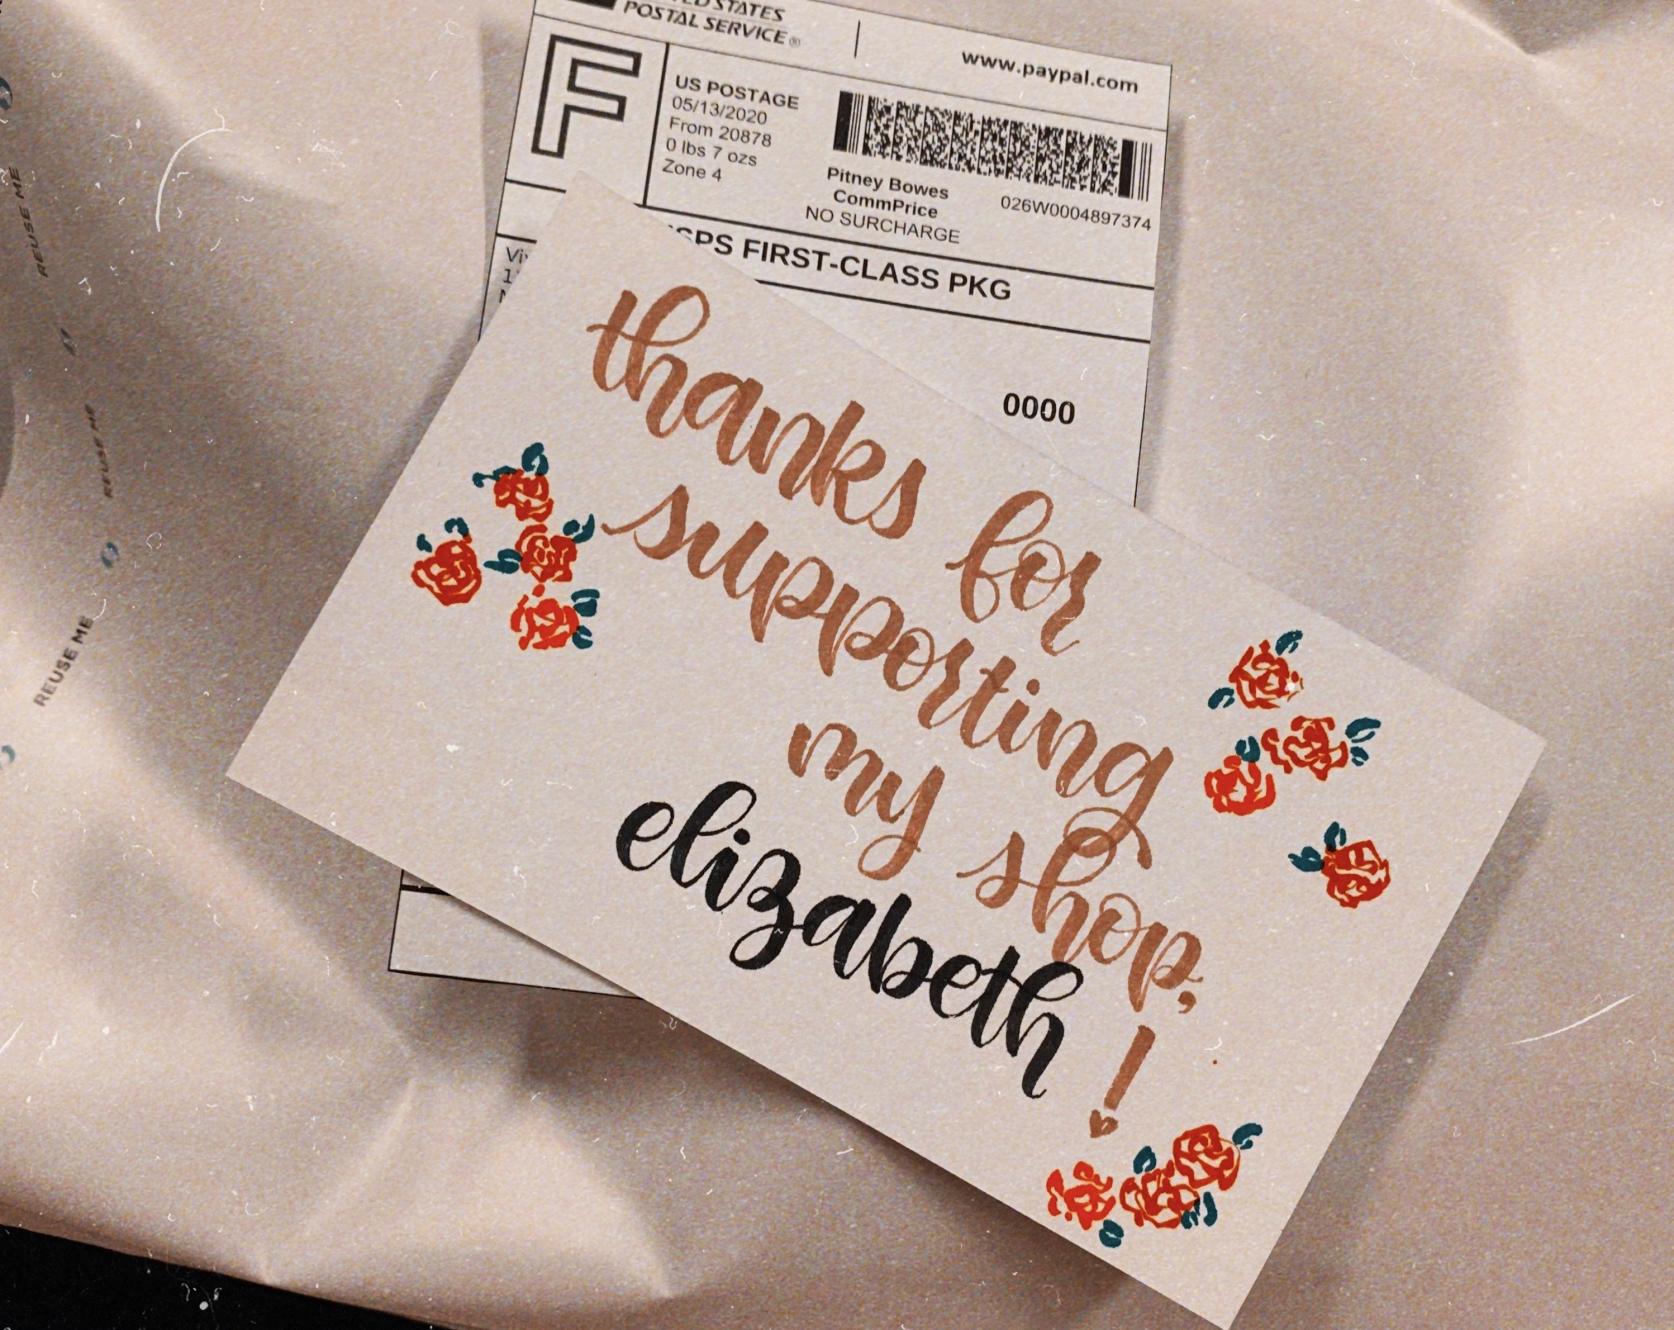 STATES
POSTAL SERVICE®
www.paypal.com
F
US POSTAGE
05/13/2020
From 20878
0 lbs 7 ozs
Zone 4
Pitney Bowes
CommPrice
NO SURCHARGE
026W0004897374
SPS FIRST-CLASS PKG
0000
thanks for
supporting
my shop,
elizabeth!
REUSE ME
REUSE ME
REUSE ME